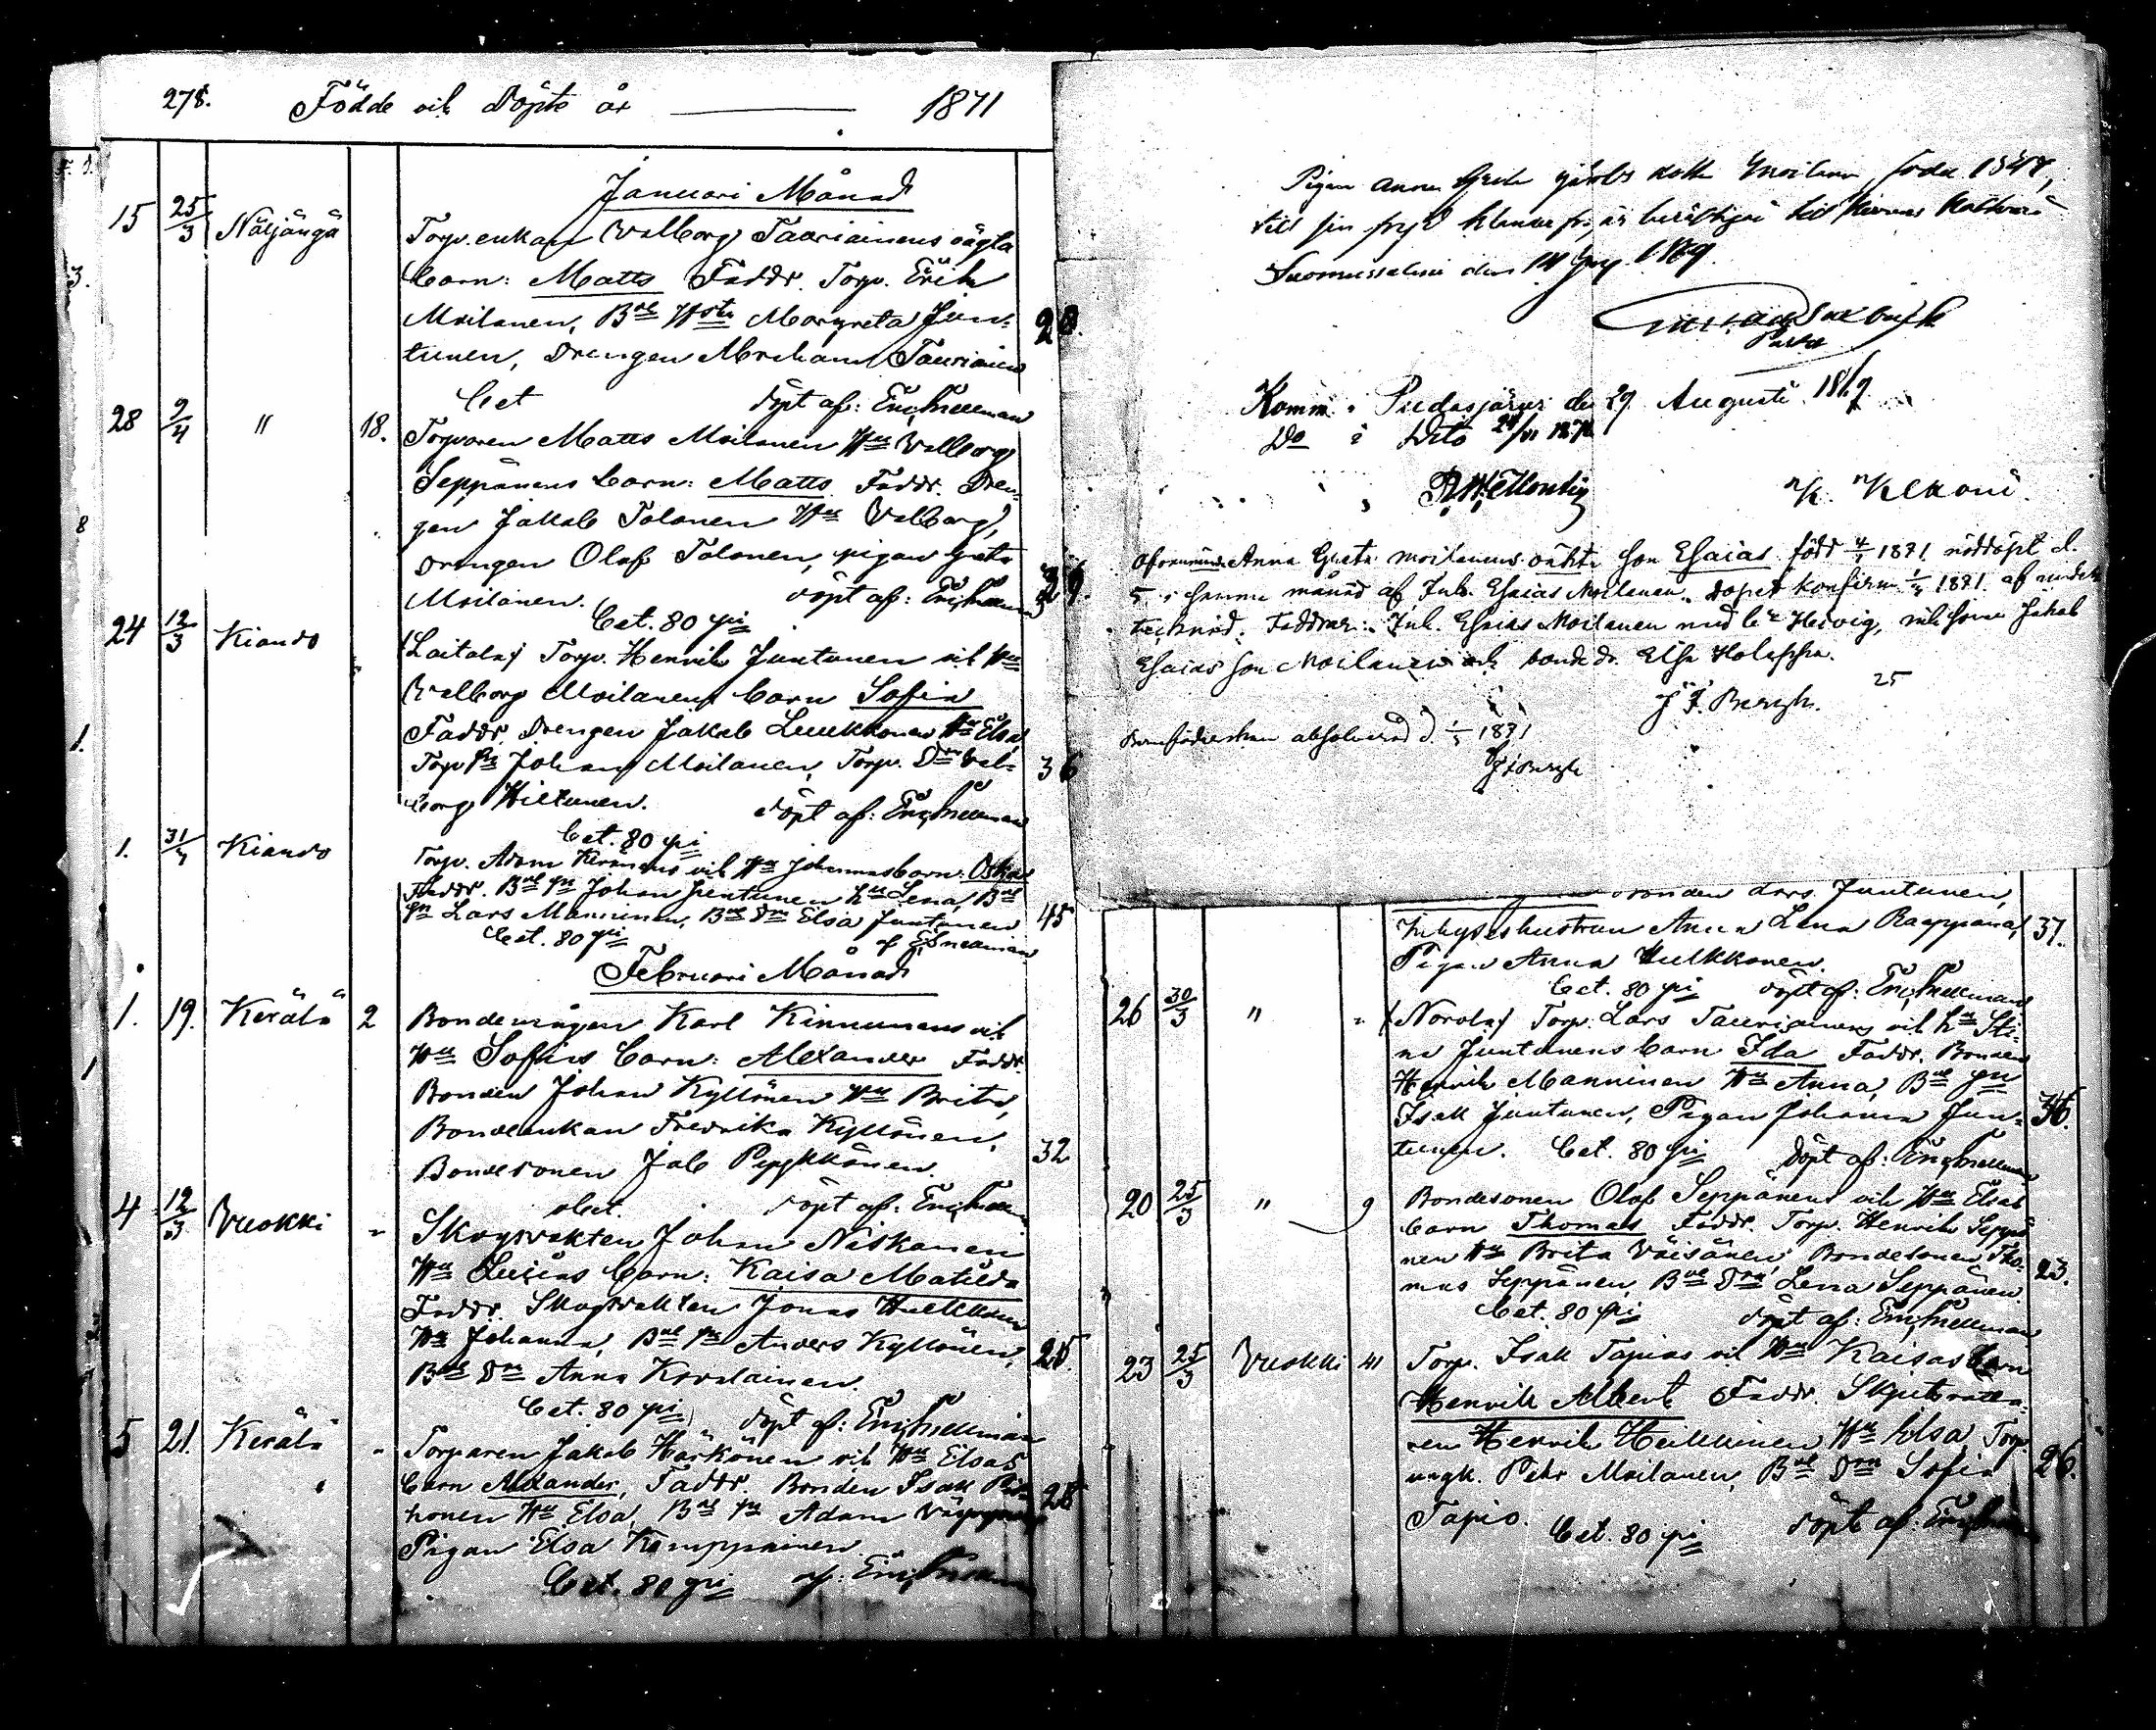 278. Födde och Döpte år — 1871
Januari Månad
15 25/3 Näljänga Torp.enkan Walborg Tauriainens oägta
barn: Matts Faddr. Torp. Erik
Moilanen, Bde Hstr Margreta Jun-
tunen, Drengen Abraham Tauriainen 28.
Cet döpt af: Em. Snellman
28 9/4 " 18. Torparen Matts Moilanen Hu Walborg
Seppänens barn: Matts Faddr. Dren-
gen Jakob Tolonen Hu Valborg,
Drengen Olof Tolonen, pigan Greta
Moilanen. döpt af: Em. Snellman 29.
Cet. 80 pi
24 12/3 Kiando (Laitala) Torp. Henrik Juntunen och Hu
Walborg Moilanens barn Sofia
Faddr. Drengen Jakob Luukkonen Hu Elsa,
Torp Sn Johan Moilanen, Torp. Dn Val- 36
borg Hiltunen. döpt af: Em. Snellman
Cet. 80 pi
1. 31/4 Kiando Torp. Adam Keränens och Hu Johannas barn: Oskar
Faddr. Bde Sn Johan Juntunen Hu Lena, Bde
Sn Lars Manninen, Bde Dn Elsa Juntunen 45
Cet. 80 pi af E. Snellman
Februari Månad
1. 19. Kerälä 2 Bondemågen Karl Kinnunens och
Hu Sofias barn: Alexander Faddr.
Bonden Johan Kyllönen Hu Brita,
Bondeenkan Fredrika Kyllönen, 32
Bondesonen Job Pyykkönen.
obet. döpt af: Em. Snellman
4 12/3 Vuokki " Skogsvakten Johan Niskanen
Hu Luisas barn: Kaisa Matilda
Faddr. Skogsvakten Jonas Hulkkonen
Hu Johanna, Bde Sn Anders Kyllönen, 25.
Bde Dn Anna Kovalainen.
Cet. 80 pi döpt af: Em. Snellman
5 21. Kerälä " Torparen Jakob Härkönen och Hu Elsas
barn Alexander, Faddr. Bonden Isak
Hu Elsa, Bde Sn Adam 28
Pigan Elsa Kemppainen
Cet. 80 pi af: Em. Snellman
Pigan Anna Greta dotter Moilanen, född 1848,
till sin frejd är berättigad till Herrans Nattvard
Suomussalmi den 1869.
Pastor
Komm. i Pudasjärvi den 29 Augusti 1869
Do i Dito
K. Klekoni.
Ofvannämnda Anna Greta Moilanens oäkta son Esaias född 4/1 1871 nöddöpt d.
5 i samma månad af Inh. Esaias Moilanen, dopet konfirm. 1871 af under-
tecknad. Faddrar: Inh. Esaias Moilanen med Hu Hedvig, och sonen Jakob
Esaias son Moilanen och bonde dr. Elsa Holappa.
25
J. F. Bergh.
Barnföderskan absolverad d. 1871
J F Bergh
bonden Lars Juntunen,
Inhyseshustrun Anna Lena Raappana, 37.
Pigan Anna Hulkkonen.
Cet. 80 pi döpt af: Em. Snellman
26 30/3 " " (Norola) Torp. Lars Tauriainens och Hu Sti-
na Juntunens barn Ida Faddr. Bonden
Henrik Manninen Hu Anna, Bde Sn
Isak Juntunen, Pigan Johanna Jun- 36.
tunen. Cet. 80 pi döpt af: Em. Snellman
20 25/3 " 9 Bondesonen Olof Seppänens och Hu Elsas
barn Thomas Faddr. Torp. Henrik Seppä-
nen Hu Brita Väisänen, Bondesonen Tho-
mas Seppänen, Bde Dn Lena Seppänen. 23.
Cet. 80 pi döpt af: Em. Snellman
23 25/3 Vuokki 41 Torp. Isak Tapios och Hu Kaisas barn
Henrik Albert Faddr. Skjutsrätta-
ren Henrik Heikkinen Hu Elsa, Torp.
ungk. Petr Moilanen, Bde Dn Sofia 26.
Tapio. Cet. 80 pi döpt af: Em. Snellman